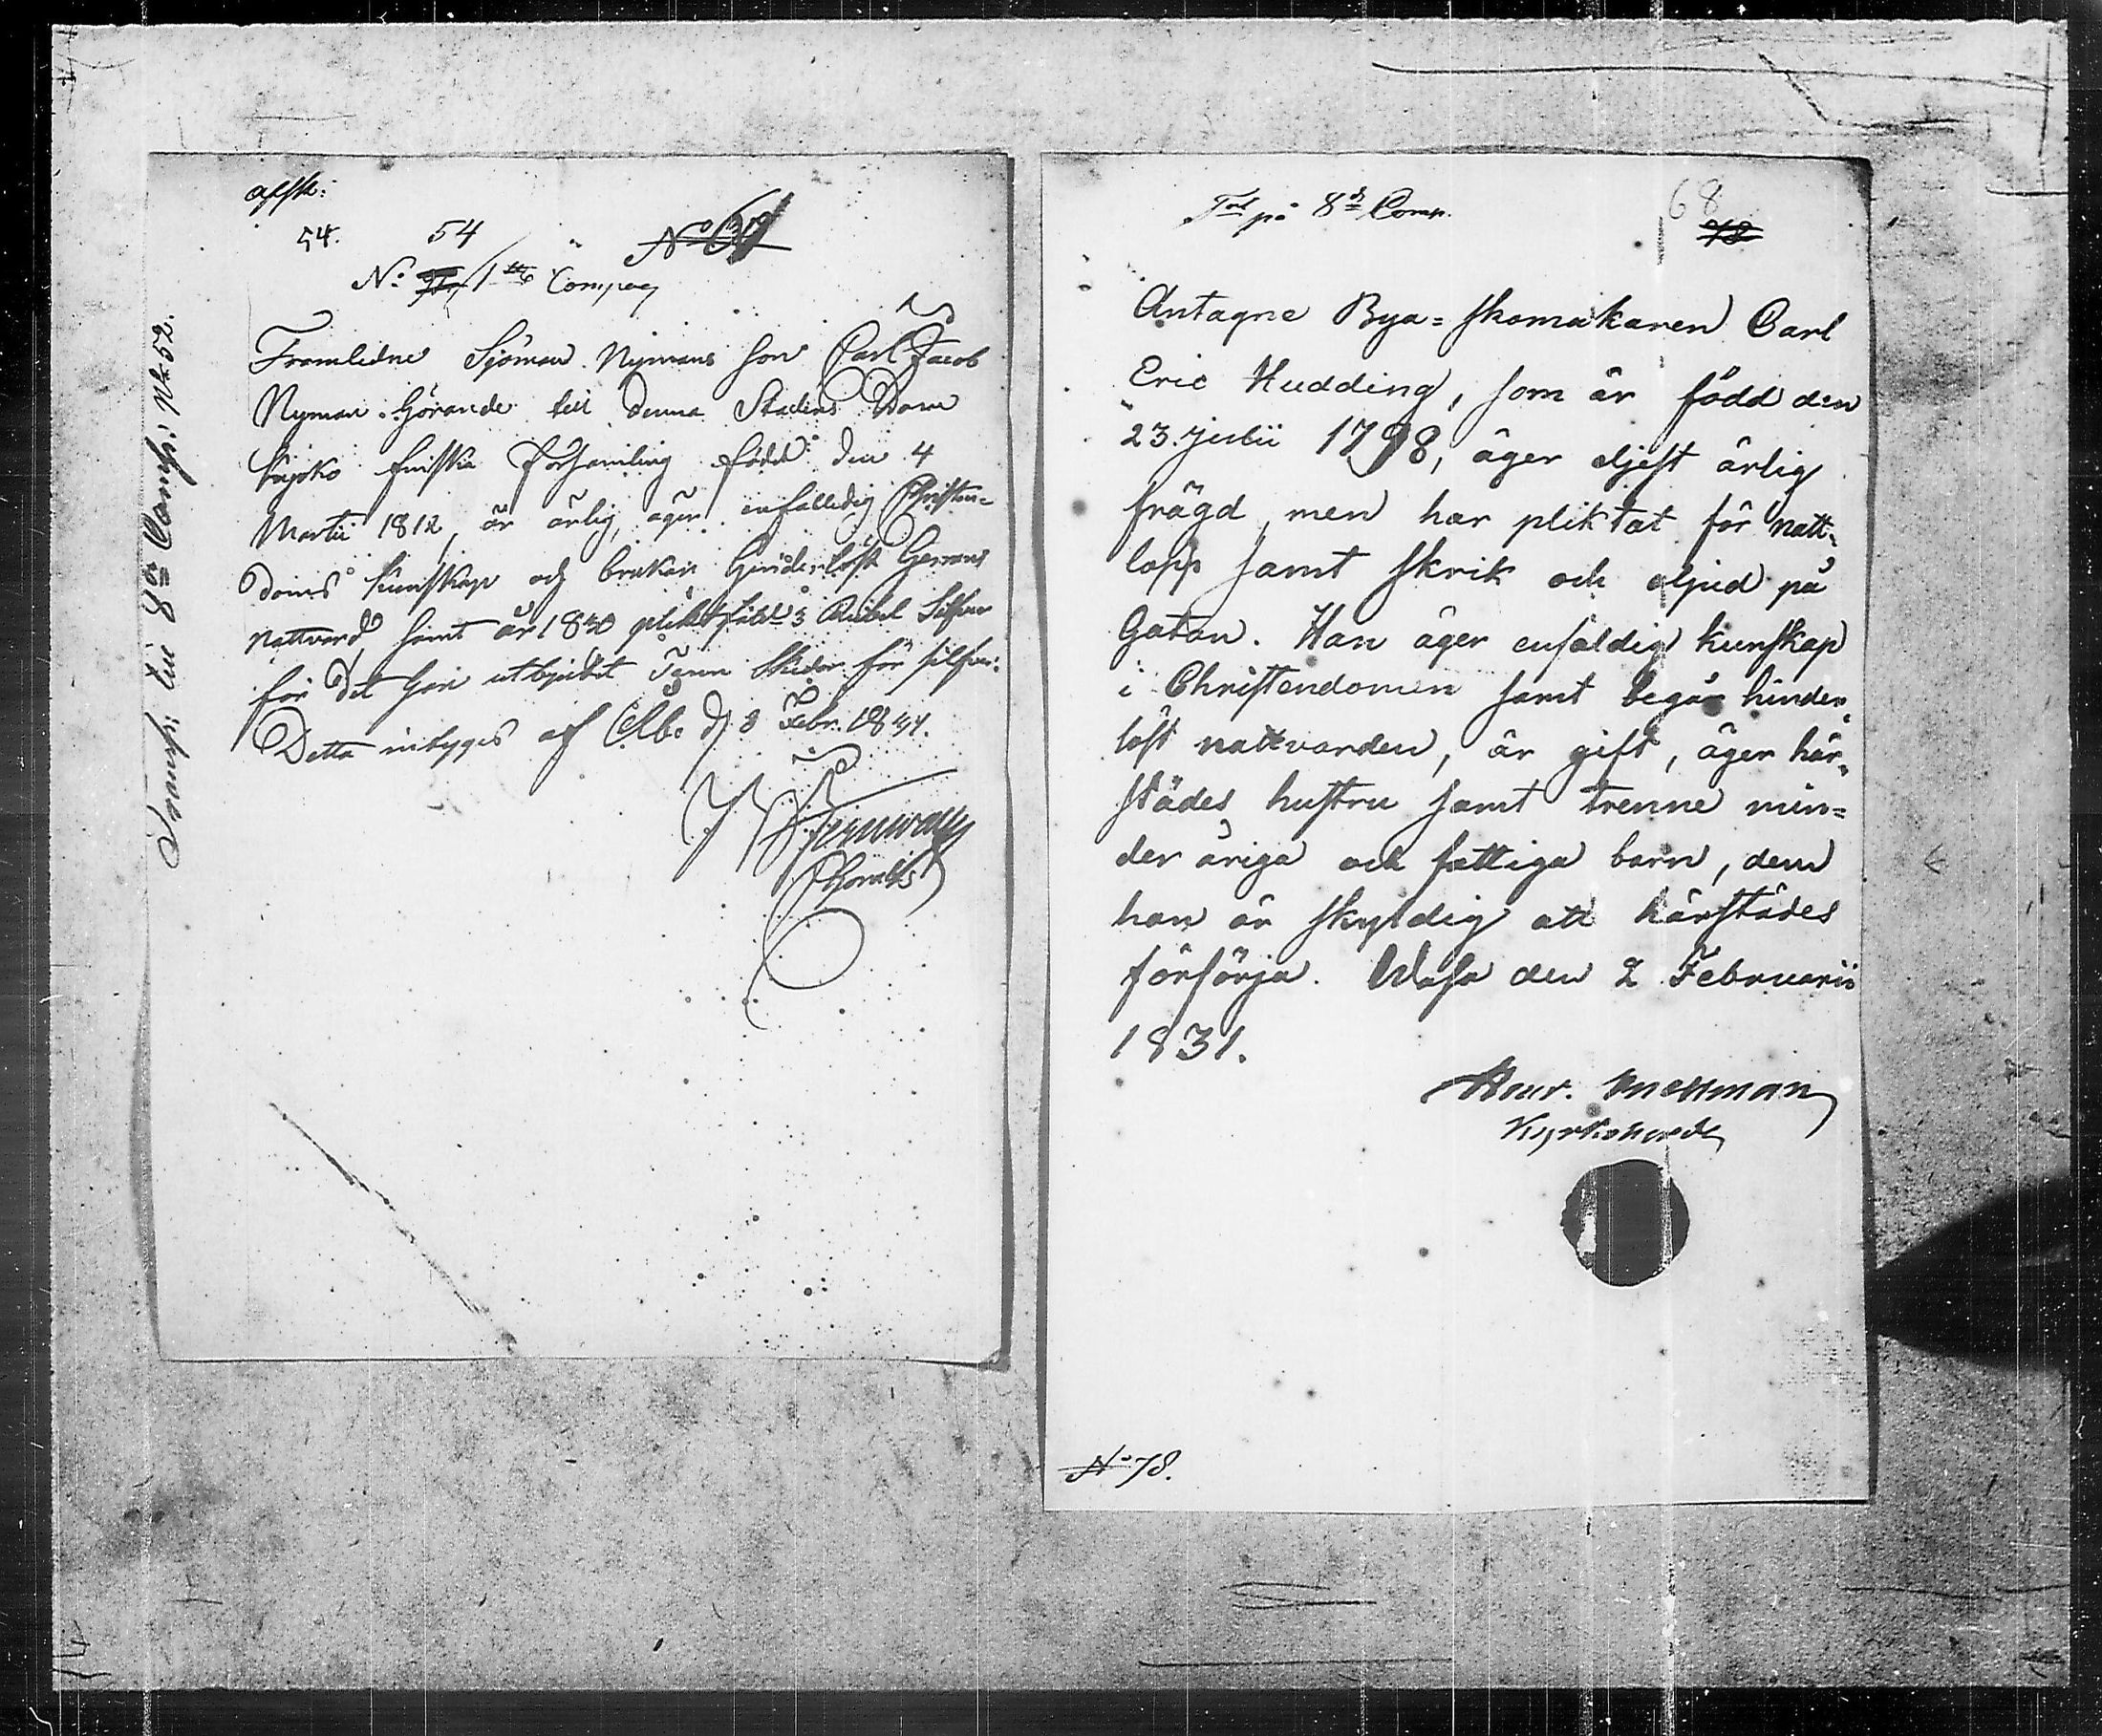 afsk:
54. 54 No 61
No 1ste Compag
Transp: till 8de Comp: No 52.
Framledne Sjöman Nymans son Carl Jacob
Nyman hörande till denna Stadens Dom
kyrko finska församling född den 4
Martii 1812, är ärlig, äger enfaldig Christen-
doms kunskap och brukar hinderlöst Herrans
nattvard, samt år 1830 pliktfäld 3 Rubel Silfver
för det han utbjudit Tenn skedar för silfver.
Detta intygas af Åbo d. 8 Febr. 1831.
Trsl på 8de Comp. 68
78
Antagne Bya-skomakaren Carl
Eric Hudding, som är född den
23. Julii 1798, äger eljest ärlig
frägd, men har pliktat för natt-
lopp samt skrik och oljud på
Gatan. Han äger enfaldig kunskap
i Christendomen samt begår hinder-
löst nattvarden, är gift, äger här-
städes hustru samt trenne min-
der åriga och fattiga barn, dem
han är skyldig att härstädes
försörja. Wasa den 2 Februarii
1831.
Mellman
Kyrkoherde
No 78.